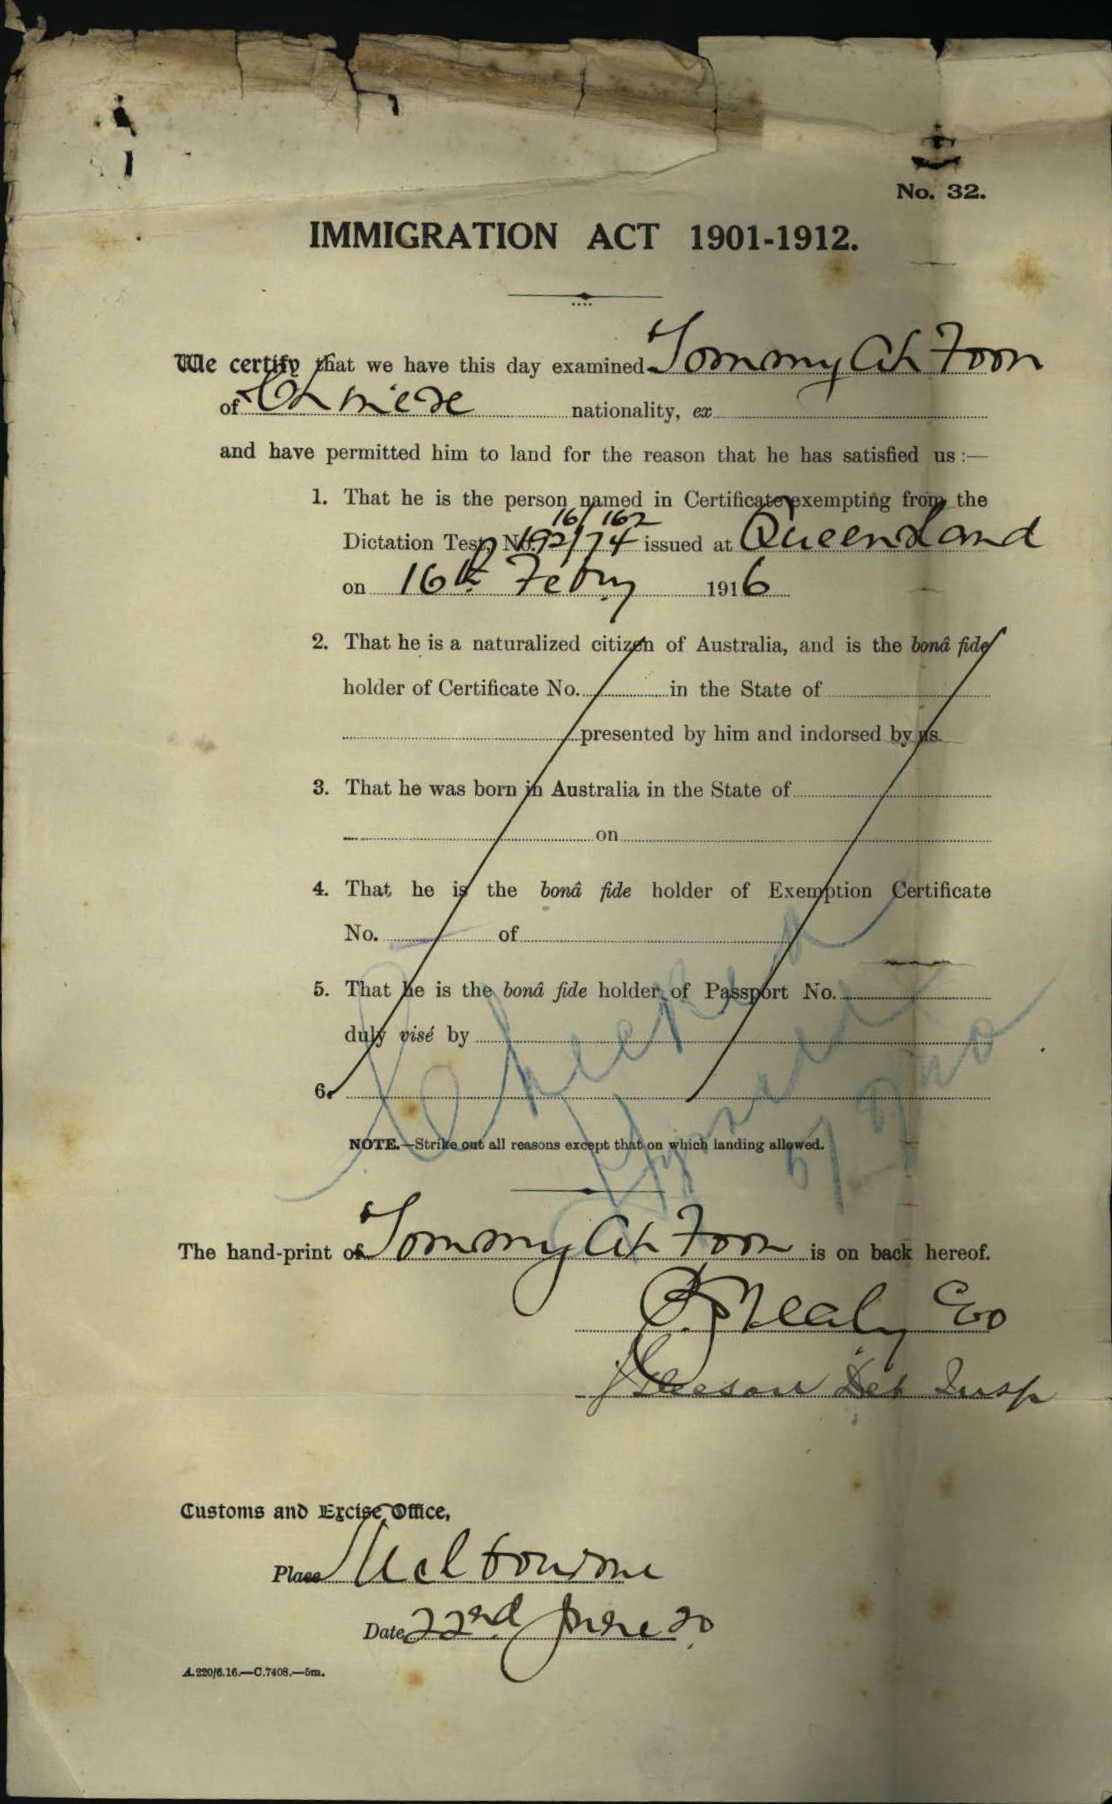 No. 32.
IMMIGRATION ACT 1901-1912.
We certify that we have this day examined Tommy Ah Foon
of Chinese nationality, ex
and have permitted him to land for the reason that he has satisfied us :—
1. That he is the person named in Certificate exempting from the
16/162
Dictation Test, No. 192/74 issued at Queensland
on 16th Febry 1916
2. That he is a naturalized citizen of Australia, and is the bonâ fide
holder of Certificate No. in the State of
presented by him and indorsed by us.
3. That he was born in Australia in the State of
on
4. That he is the bonâ fide holder of Exemption Certificate
No. of
5. That he is the bonâ fide holder of Passport No.
duly visé by
6.
Checked
NOTE.—Strike out all reasons except that on which landing allowed.
The hand-print of Tommy Ah Foon is on back hereof.
Nealy
J Gleeson Det Insp
Customs and Excise Office,
Place Melbourne
Date 22nd June 20
A.220/6.16.—C.7408.—5m.